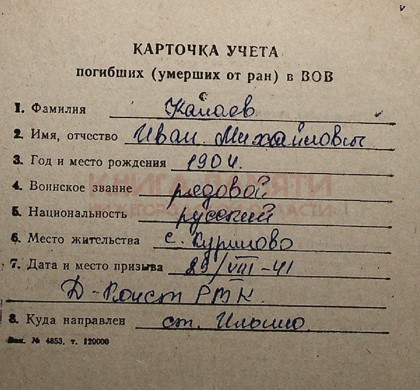 КАРТОЧКА УЧЕТА
погибших (умерших от ран) в ВОВ
1. Фамилия Калаев
2. Имя, отчество Иван Михайлович
3. Год и место рождения 1904 г.
КНИГА ПАМЯТИ
4. Воинское звание рядовой
НИЖЕГОРОДСКОЙ ОБЛАСТИ
5. Национальность русский
6. Место жительства с. Курилово
7. Дата и место призыва 29/VIII-41
Д-Конст РМК.
8. Куда направлен ст. Ильино
Зак. № 4853, т. 120000